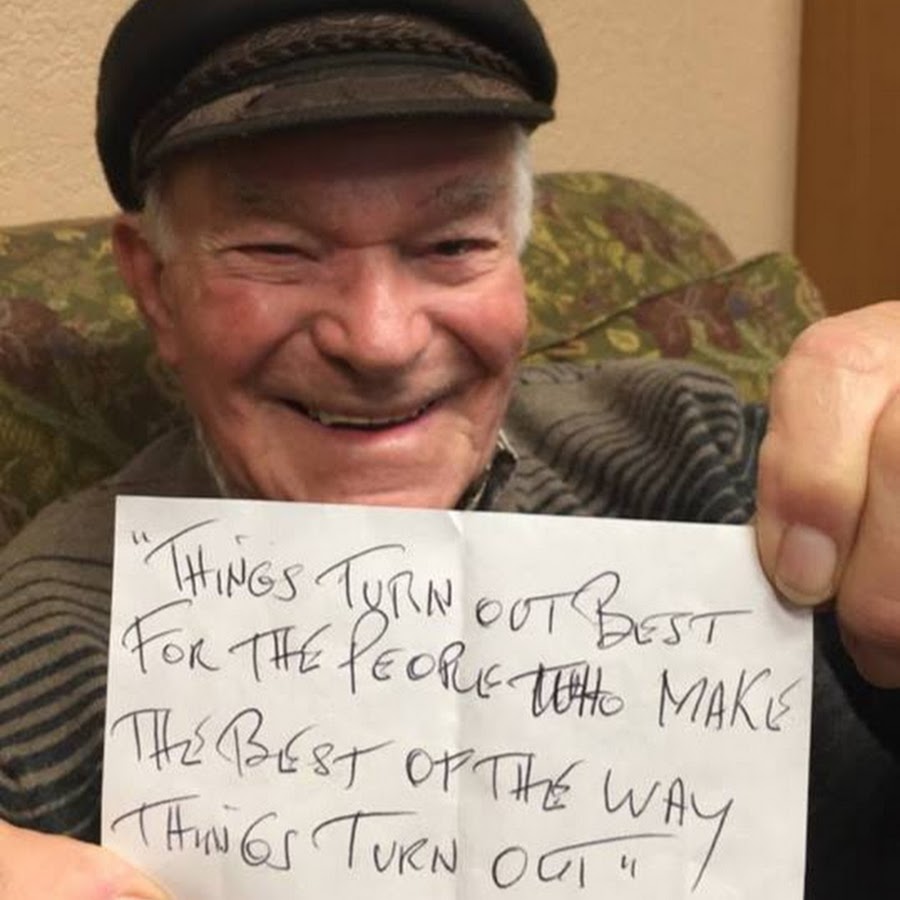 "THINGS TURN OUT BEST
FOR THE PEOPLE WHO MAKE
THE BEST OF THE WAY
THINGS TURN OUT"